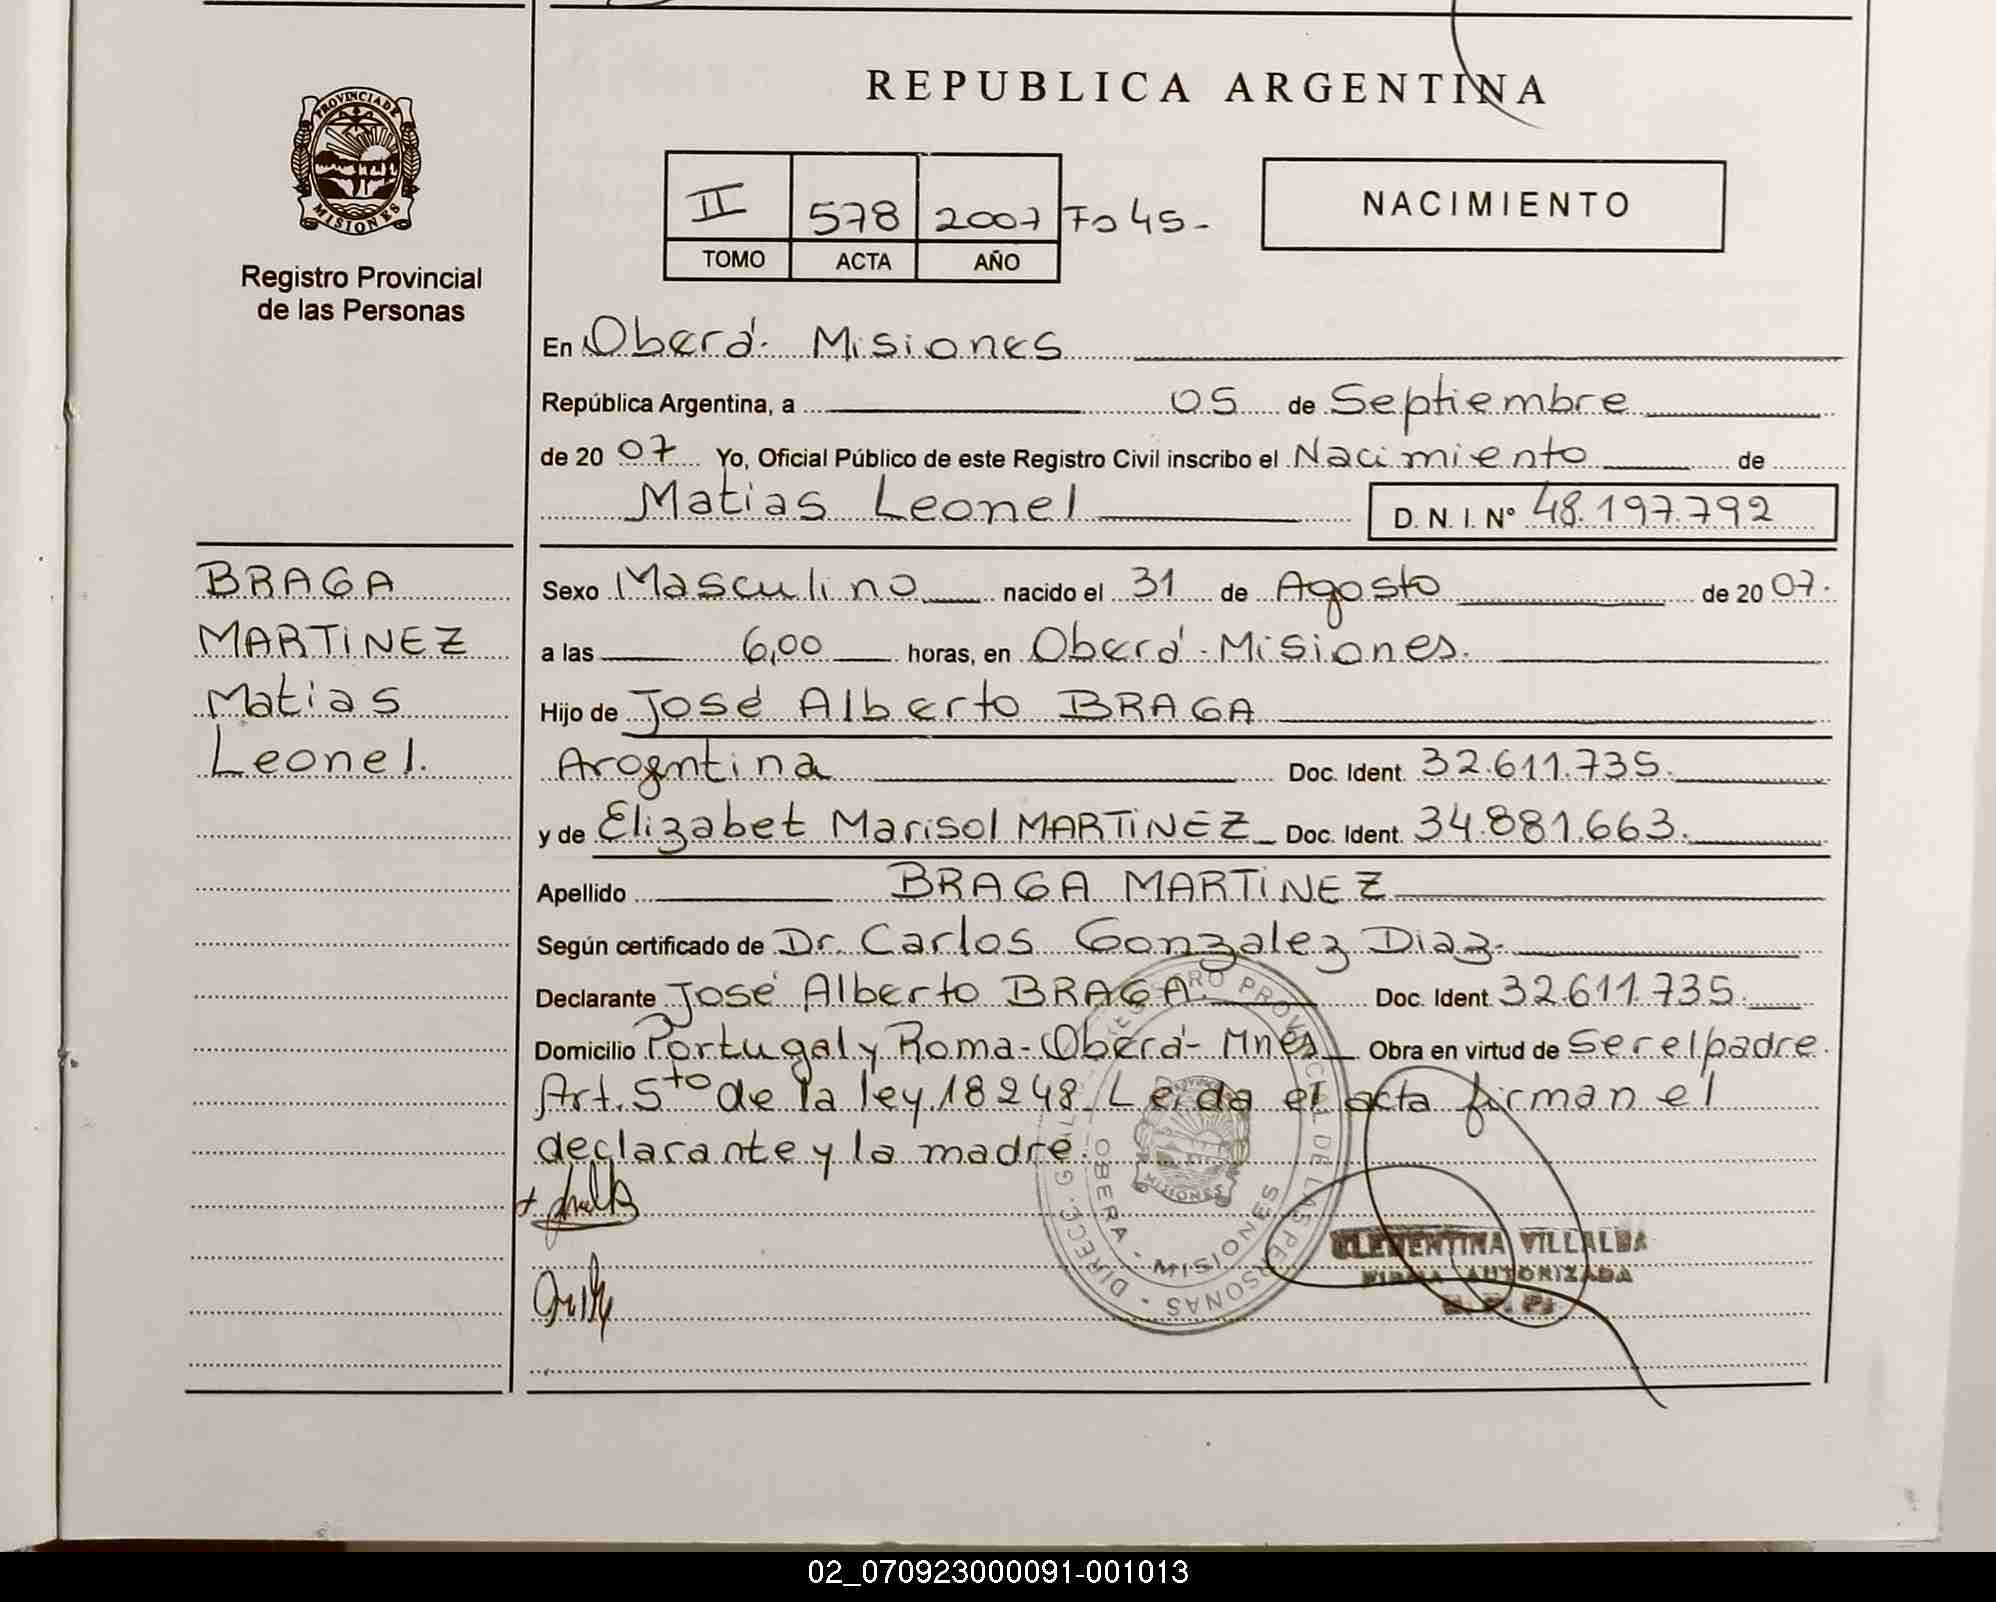 REPUBLICA ARGENTINA
PROVINCIA DE
MISIONES
Registro Provincial
de las Personas
II 578 2007 Fo 45-
TOMO ACTA AÑO
NACIMIENTO
En Oberá - Misiones
República Argentina, a 05 de Septiembre
de 2007 Yo, Oficial Público de este Registro Civil inscribo el Nacimiento de
Matias Leonel D. N. I. N° 48.197.792
BRAGA
MARTiNEZ
Matias
Leonel.
Sexo Masculino nacido el 31 de Agosto de 2007.
a las 6,00 horas, en Oberá - Misiones.
Hijo de José Alberto BRAGA
Arogntina Doc. Ident. 32.611.735.
y de Elizabet Marisol MARTiNEZ Doc. Ident. 34.881.663.
Apellido BRAGA MARTiNEZ
Según certificado de Dr. Carlos Gonzalez Diaz.
Declarante José Alberto BRAGA. Doc. Ident. 32.611.735.
Domicilio Portugal y Roma - Oberá - Mnes Obra en virtud de ser el padre.
Art. 5to de la ley 18248. Leida el acta firman el
declarante y la madre.
REGISTRO PROVINCIAL DE LAS PERSONAS - DIRECC. GRAL.
OBERA - MISIONES
PROVINCIA DE
MISIONES
CLEMENTINA VILLALBA
FIRMA AUTORIZADA
02_070923000091-001013